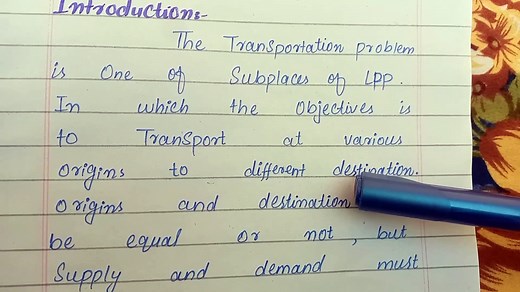 Introduction:-
The Transportation problem
is One of Subplaces of LPP.
In which the Objectives is
to Transport at various
Origins to different destination.
Origins and destination
be equal or not, but
Supply and demand must